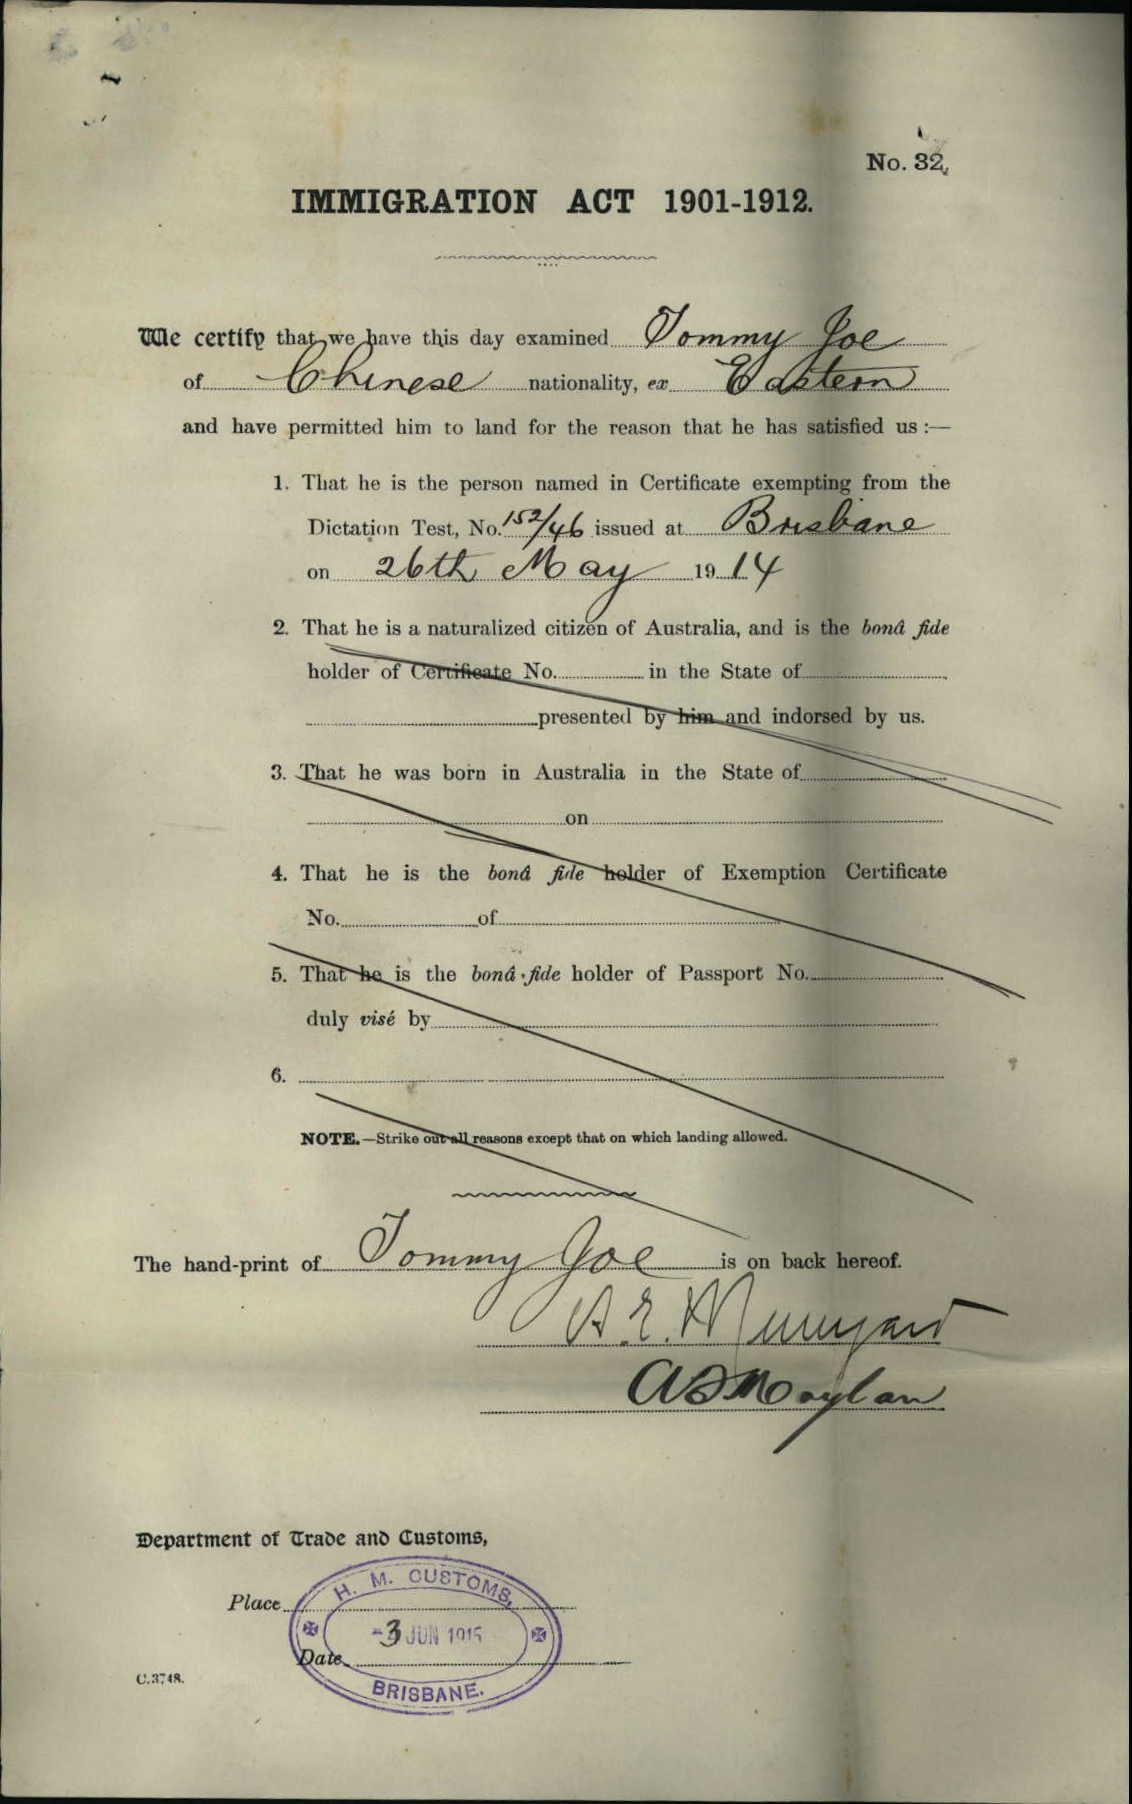 No. 32.
IMMIGRATION ACT 1901-1912.
We certify that we have this day examined Tommy Joe
of Chinese nationality, ex Eastern
and have permitted him to land for the reason that he has satisfied us :—
1. That he is the person named in Certificate exempting from the
Dictation Test, No. 152/46 issued at Brisbane
on 26th May 1914
2. That he is a naturalized citizen of Australia, and is the bonâ fide
holder of Certificate No. in the State of
presented by him and indorsed by us.
3. That he was born in Australia in the State of
on
4. That he is the bonâ fide holder of Exemption Certificate
No. of
5. That he is the bonâ fide holder of Passport No.
duly visé by
6.
NOTE.—Strike out all reasons except that on which landing allowed.
The hand-print of Tommy Joe is on back hereof.
A. E.
Moylan
Department of Trade and Customs,
H. M. CUSTOMS,
Place
-3 JUN 1915
Date
BRISBANE.
C.3748.